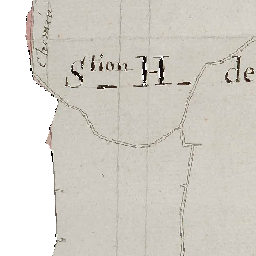 Chemin
S.tion H de